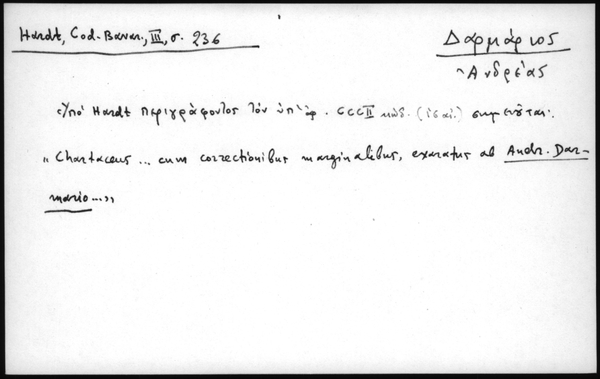 Hardt, Cod. Bavar., III, σ. 236
Δαρμάριος
Ἀνδρέας
Ὑπὸ Hardt περιγράφοντος τὸν ὑπ' ἀρ. CCCII κώδ. σημειοῦται:
"Chartaceus ... cum correctionibus marginalibus, exaratus ab Andr. Dar-
mario..."